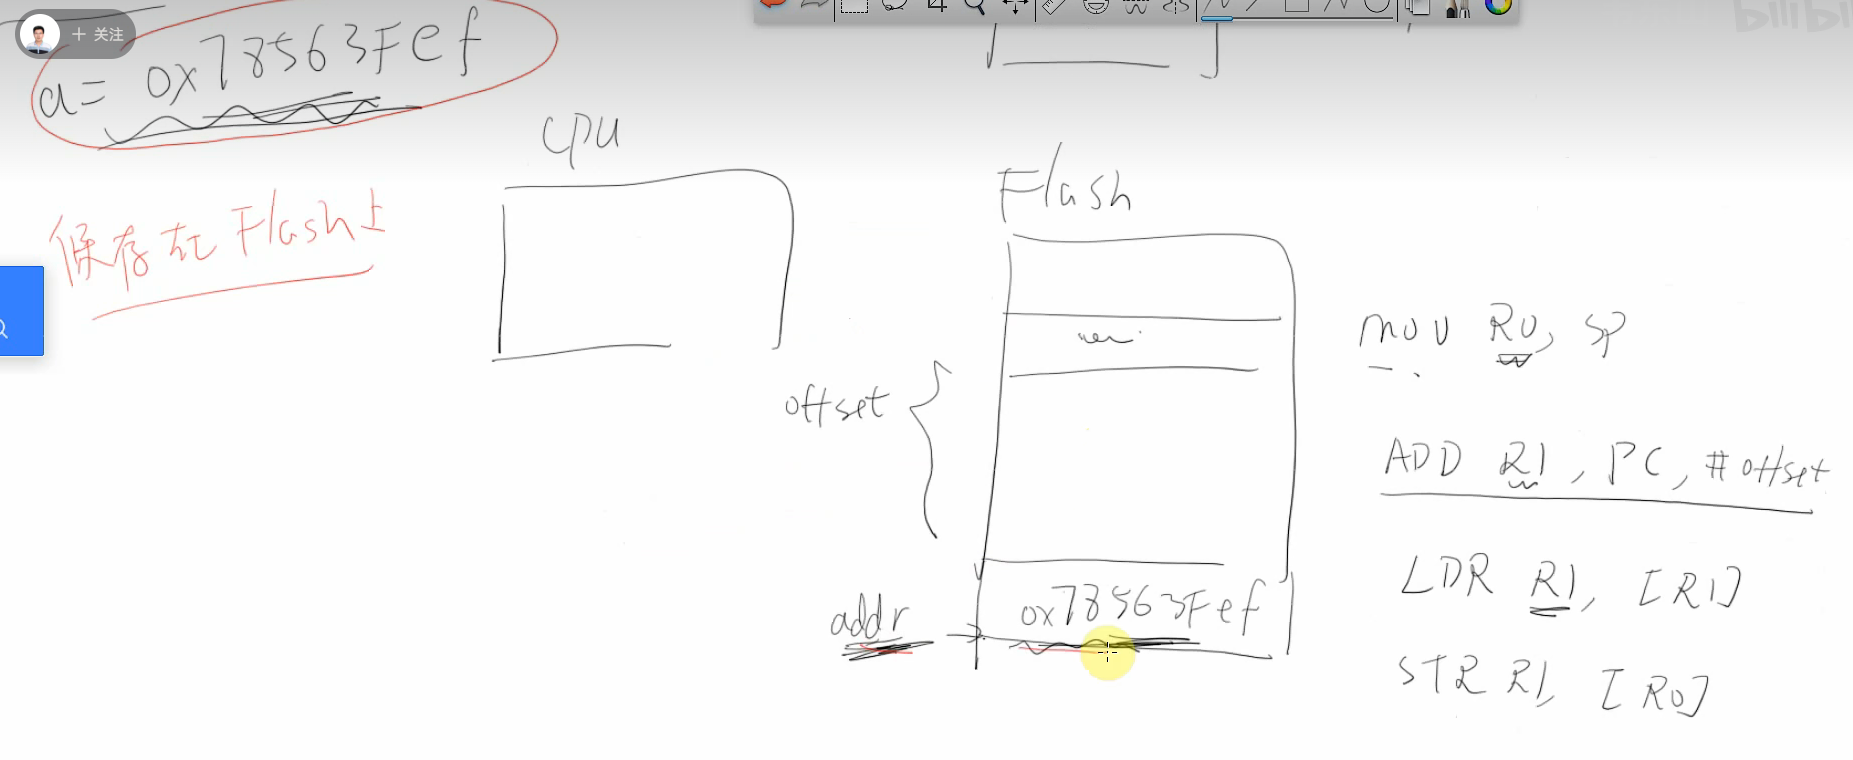 + 关注
bilibi
a = 0x78563Fef
CPU
保存在Flash上
Flash
offset
addr
0x78563Fef
MOV R0, SP
ADD R1, PC, #offset
LDR R1, [R1]
STR R1, [R0]